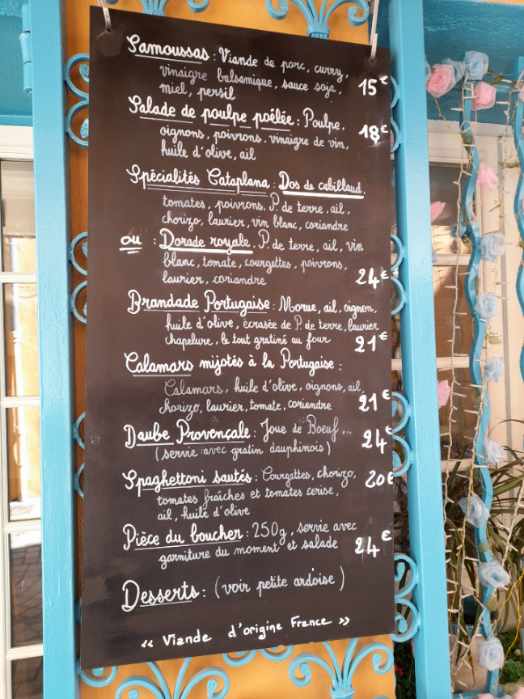 Samoussas : Viande de porc, curry,
vinaigre balsamique, sauce soja,
miel, persil 15€
Salade de poulpe poêlée : Poulpe,
oignons, poivrons, vinaigre de vin, 18€
huile d'olive, ail
Spécialités Cataplana : Dos de cabillaud,
tomates, poivrons, P. de terre, ail,
chorizo, laurier, vin blanc, coriandre
ou : Dorade royale, P. de terre, ail, vin
blanc, tomate, courgettes, poivrons,
laurier, coriandre 24€
Brandade Portugaise : Morue, ail, oignon,
huile d'olive, écrasée de P. de terre, laurier
chapelure, le tout gratiné au four 21€
Calamars mijotés à la Portugaise :
Calamars, huile d'olive, oignons, ail,
chorizo, laurier, tomate, coriandre 21€
Daube Provençale : Joue de Boeuf...
(servie avec gratin dauphinois) 24€
Spaghettoni sautés : Courgettes, chorizo, 20€
tomates fraîches et tomates cerise,
ail, huile d'olive
Pièce du boucher : 250g, servie avec
garniture du moment et salade 24€
Desserts : (voir petite ardoise)
« Viande d'origine France »